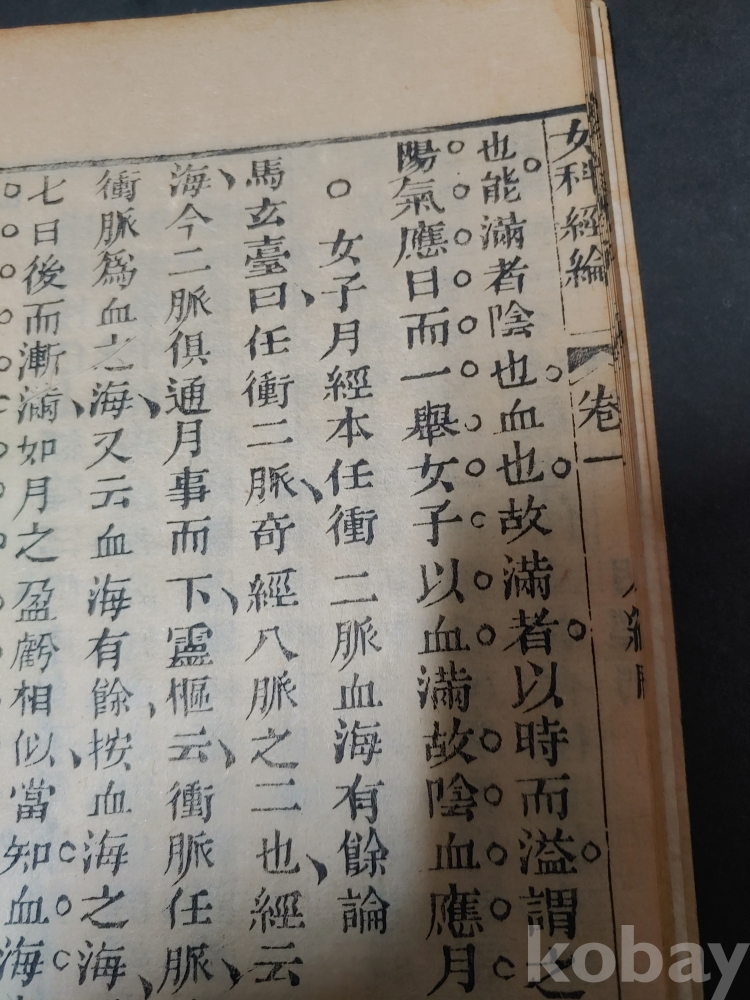 女科經綸 卷一
也能滿者陰也血也故滿者以時而溢謂之
陽氣應日而一舉女子以血滿故陰血應月
○女子月經本任衝二脈血海有餘論
馬玄臺曰任衝二脈奇經八脈之二也經云
海今二脈俱通月事而下靈樞云衝脈任脈
衝脈爲血之海又云血海有餘按血海之海
七日後而漸滿如月之盈虧相似當知血海
kobay